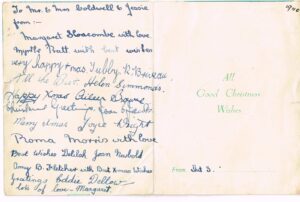 To Mr. & Mrs Coldwell & Jessie
from :-
Margaret Slocombe with love
Myrtle Pratt with best wishes
very happy xmas. Tubby
All the Best Helen Simmonds.
Happy Xmas Eileen Browne
Christmas Greetings, Joan
Merry Xmas Joyce Knight
Roma Morris with love
Best Wishes Delilah Joan Newbold
Amy B. Fletcher with Best Xmas Wishes
Greetings Eddie Dellow
lots of love - Margaret.
All
Good Christmas
Wishes
From